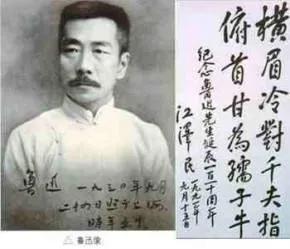 魯迅 一九三〇年九月
二十四日照于上海
時年五十
△ 鲁迅像
橫眉冷對千夫指
俯首甘為孺子牛
纪念魯迅先生誕辰一百一十周年
江澤民
一九九一年
九月十五日